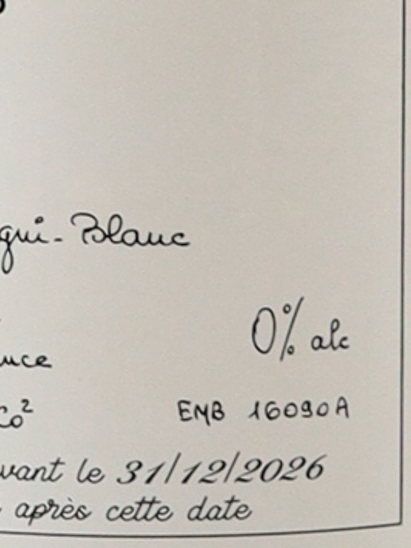 gui-Blanc
0% alc
uce
Co²
EMB 16090A
vant le 31/12/2026
après cette date